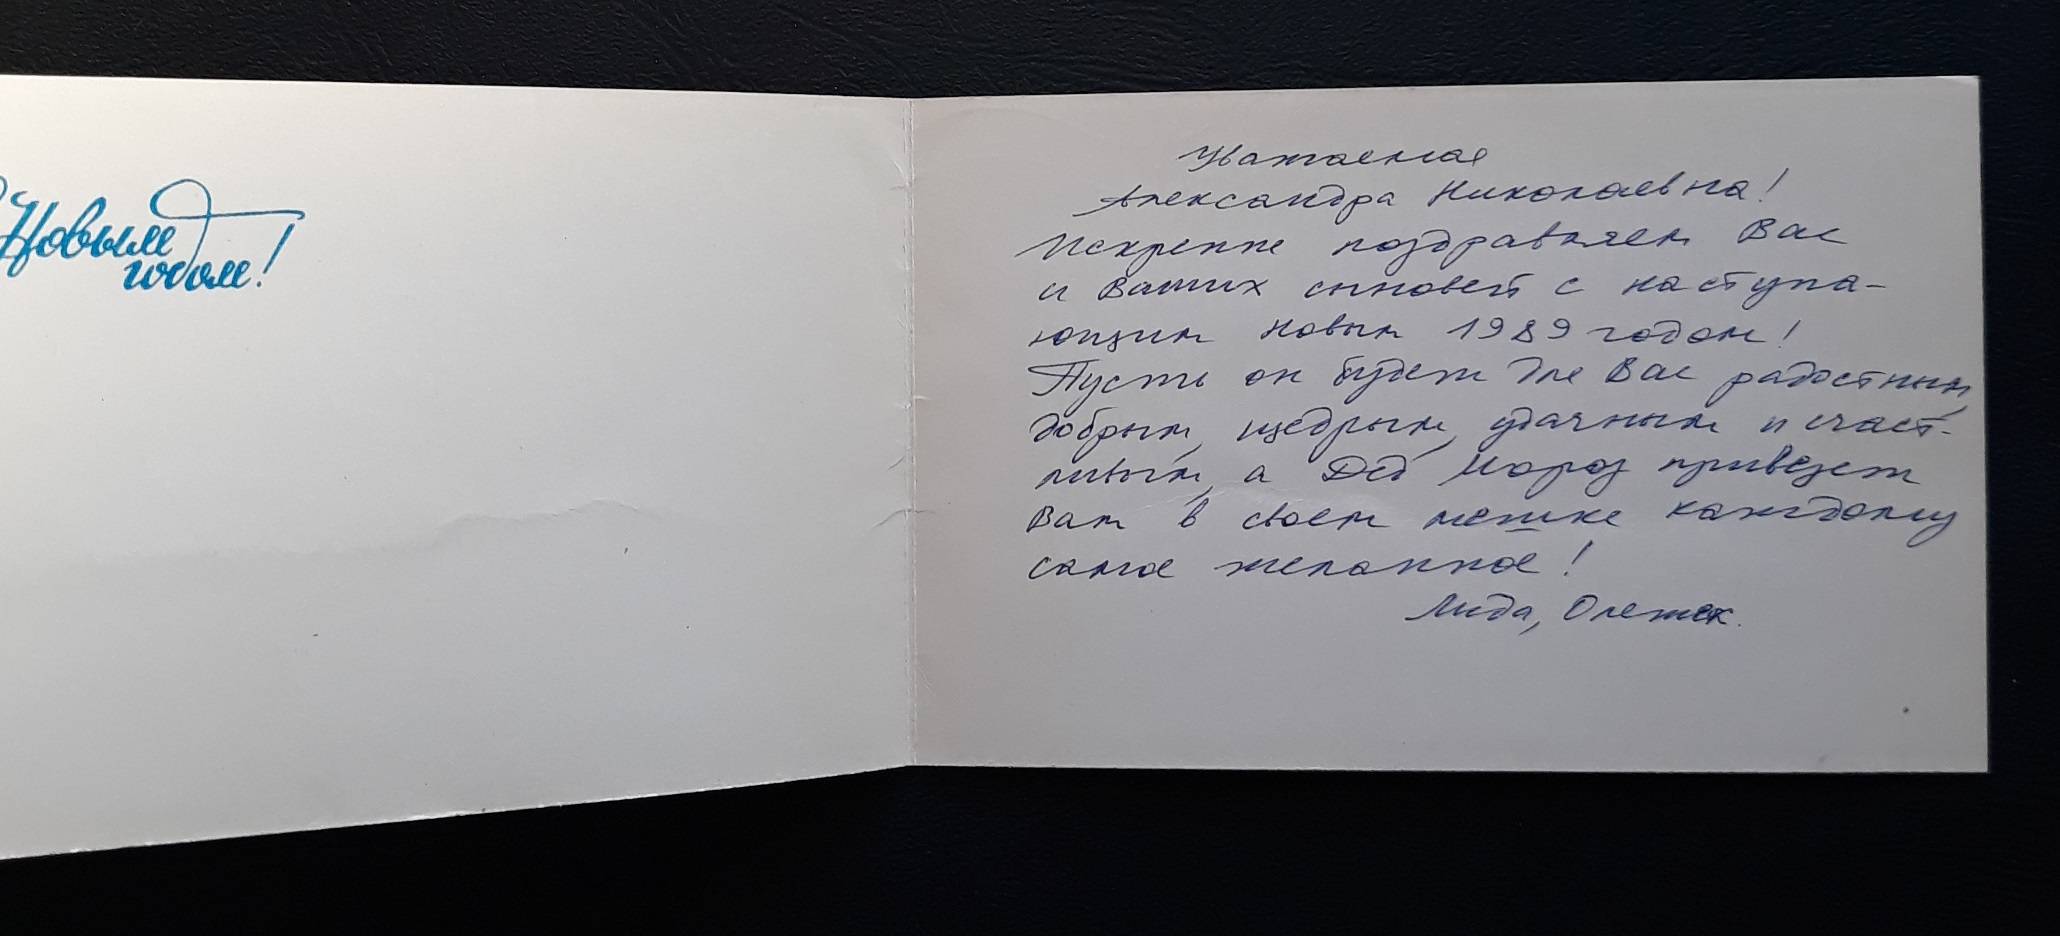 Новым
годом!
Уважаемая
Александра Николаевна!
Искренне поздравляем Вас
и Ваших сыновей с наступа-
ющим Новым 1989 годом!
Пусть он будет для Вас радостным,
добрым, щедрым, удачным и счаст-
ливым, а Дед Мороз привезет
Вам в своем мешке каждому
самое желанное!
Лида, Олежек.